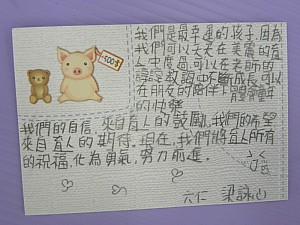 我們是最幸運的孩子,因為
我們可以天天在美麗的育
人中度過,可以在老師的
諄諄教誨中不斷成長,可以
在朋友的陪伴下體驗童年
的快樂
我們的自信,來自育人的鼓勵,我們的希望
來自育人的期待.現在,我們將育人所有
的祝福,化為勇氣,努力前進.
六仁 梁詠心